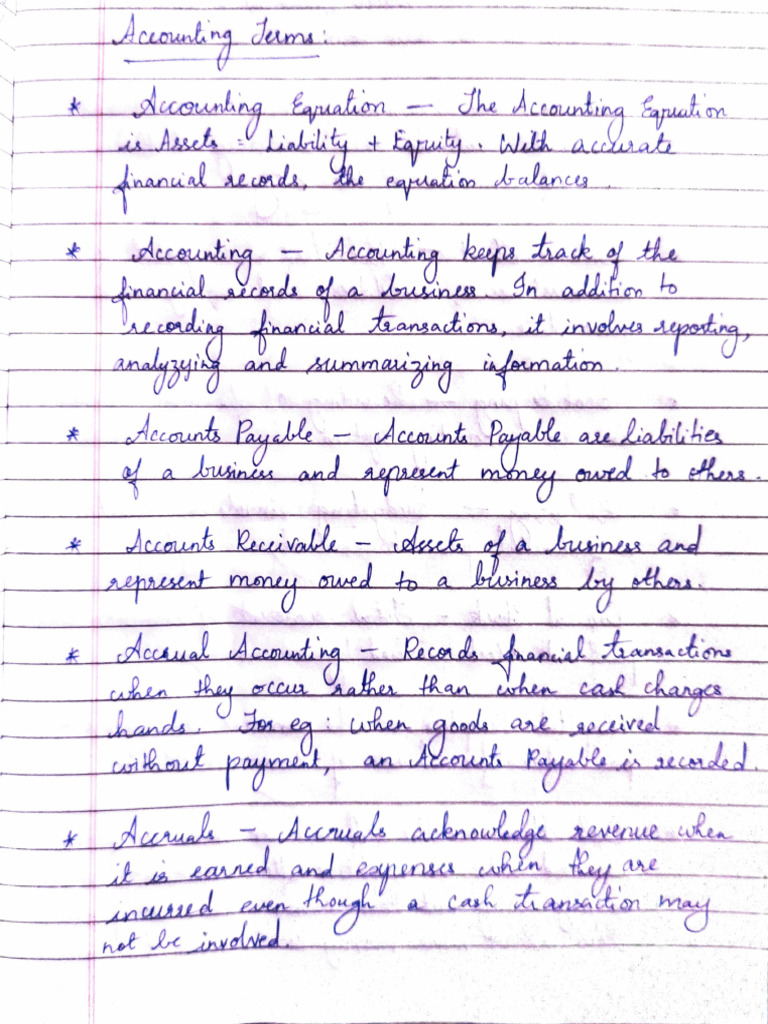 Accounting Terms:
* Accounting Equation — The Accounting Equation
is Assets = Liability + Equity. With accurate
financial records, the equation balances.
* Accounting — Accounting keeps track of the
financial records of a business. In addition to
recording financial transactions, it involves reporting,
analyzying and summarizing information.
* Accounts Payable — Accounts Payable are liabilities
of a business and represent money owed to others.
* Accounts Receivable — Assets of a business and
represent money owed to a business by others.
* Accrual Accounting — Records financial transactions
when they occur rather than when cash charges
hands. For eg: when goods are received
without payment, an Accounts Payable is recorded.
* Accruals — Accruals acknowledge revenue when
it is earned and expenses when they are
incurred even though a cash transaction may
not be involved.